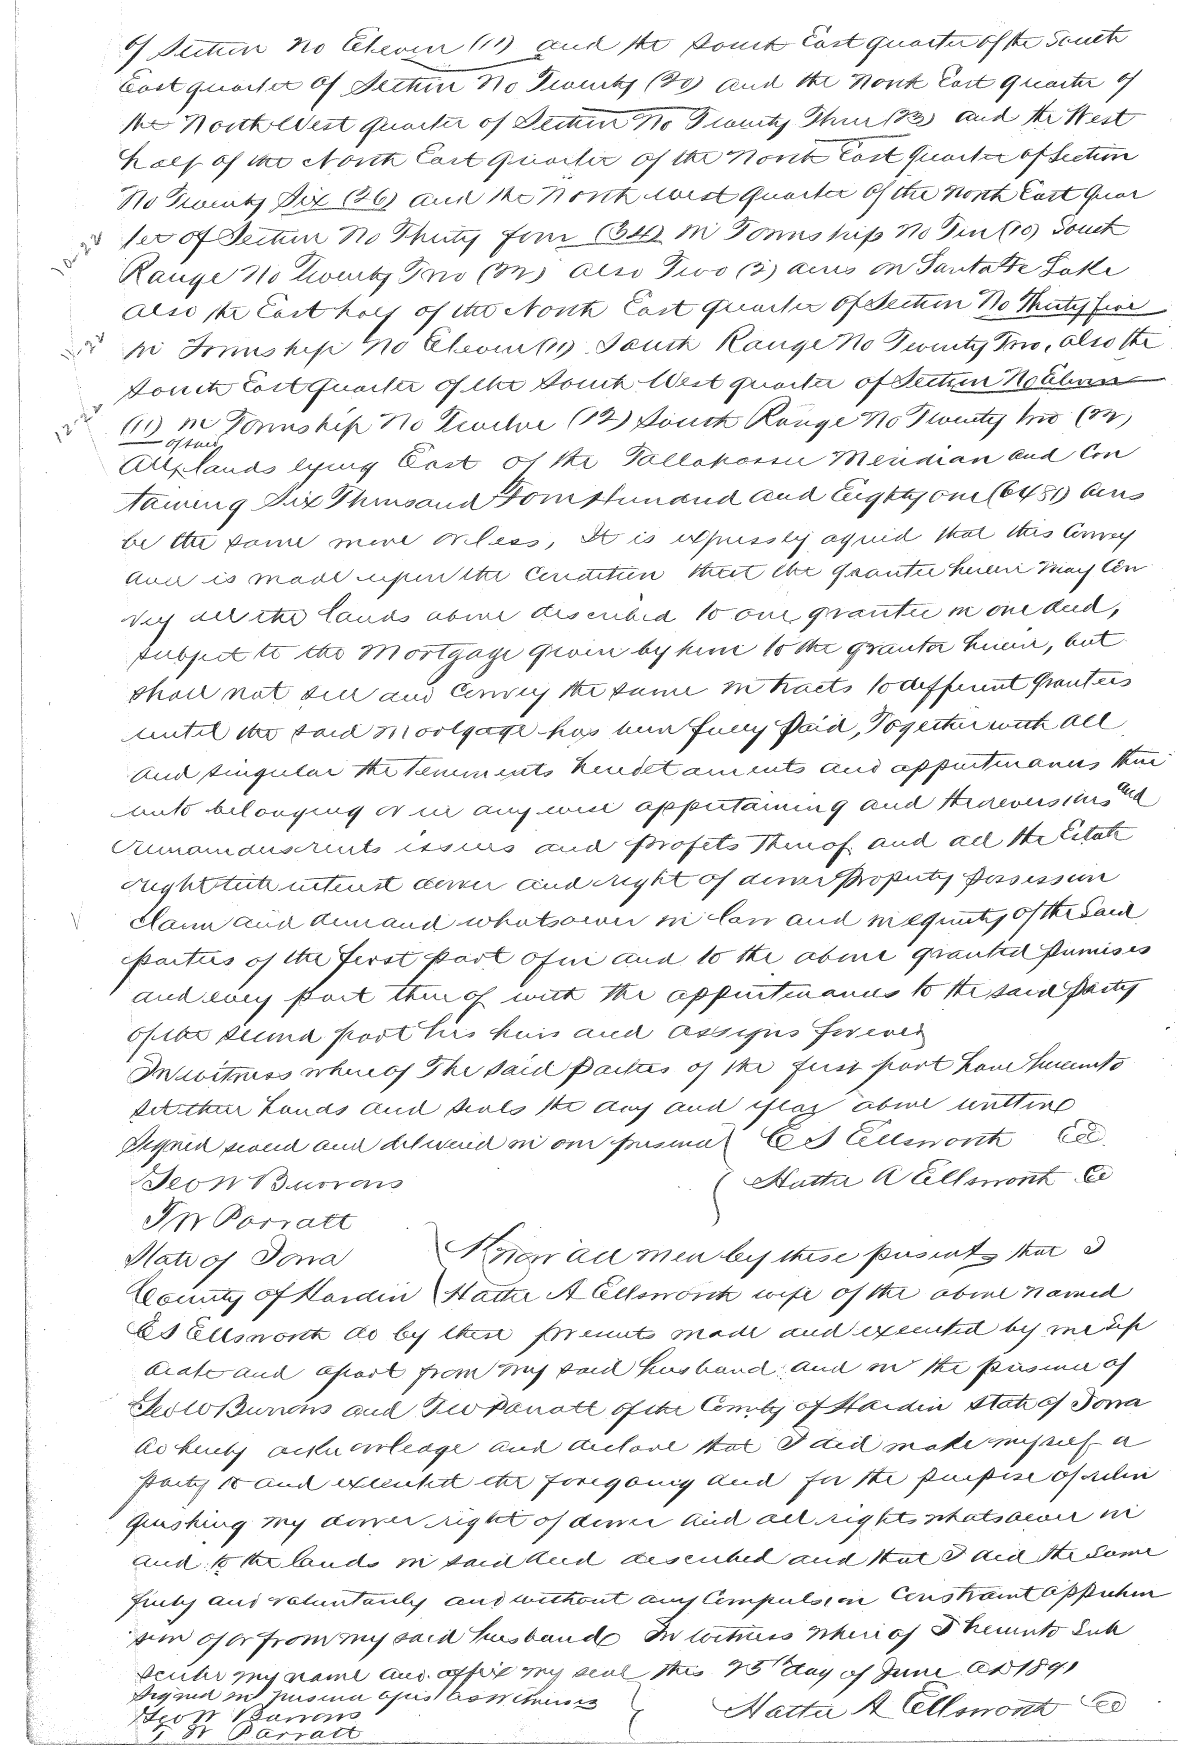 of Section No Eleven (11) and the South East quarter of the South
East quarter of Section No Twenty (20) and the North East quarter of
the North West quarter of Section No Twenty Three (23) and the West
half of the North East quarter of the North East quarter of Section
No Twenty Six (26) and the North West quarter of the North East Quar
ter of Section No Thirty four (34) in Township No Ten (10) South
10-22
Range No Twenty Two (22) also Two (2) acres on Santa Fe Lake
also the East half of the North East quarter of Section No Thirty five
11-22
in Township No Eleven (11) South Range No Twenty Two, also the
South East quarter of the South West quarter of Section No Eleven
12-22
(11) in Township No Twelve (12) South Range No Twenty two (22)
of said
All lands lying East of the Tallahassee Meridian and Con
taining Six Thousand Four Hundred and Eighty one (6481) acres
be the same more or less, It is expressly agreed that this Convey
ance is made upon the condition that the grantee herein may Con
vey all the lands above described to one grantee in one deed,
subject to the Mortgage given by him to the grantor herein, but
shall not sell and convey the same in tracts to different grantees
until the said Mortgage has been fully paid, Together with all
and singular the tenements hereditaments and appurtenances there
unto belonging or in any wise appertaining and the reversions and
remainders rents issues and profits thereof and all the Estate
right title interest dower and right of dower property possession
claim and demand whatsoever in law and in equity of the said
parties of the first part of in and to the above granted premises
and every part thereof with the appurtenances to the said party
of the second part his heirs and assigns forever
In witness whereof The said Parties of the first part have hereunto
set their hands and seals the day and year above written
Signed sealed and delivered in our presence E S Ellsworth
Geo W Burrows Hattie A Ellsworth
T W Parratt
State of Iowa Know all men by these presents that I
County of Hardin Hattie A Ellsworth wife of the above named
E S Ellsworth do by these presents made and executed by me sep
arate and apart from my said husband and in the presence of
Geo W Burrows and T W Parratt of the County of Hardin State of Iowa
do hereby acknowledge and declare that I did make myself a
party to and executed the foregoing deed for the purpose of relin
quishing my dower right of dower and all rights whatsoever in
and to the lands in said deed described and that I did the same
freely and voluntarily and without any Compulsion Constraint apprehen
sion of or from my said husband In witness whereof I hereunto Sub
scribe my name and affix my seal this 25th day of June AD 1891
Signed in presence of us as witnesses
Geo W Burrows Hattie A Ellsworth
T W Parratt